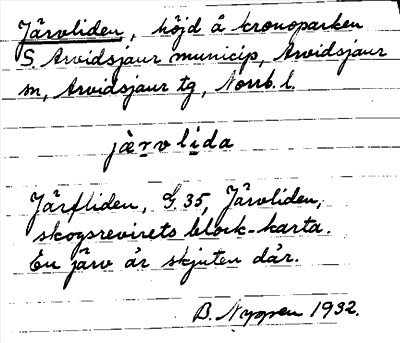 Järvliden, höjd å kronoparken
S. Arvidsjaur municip, Arvidsjaur
sn, Arvidsjaur tg, Norrb. l.
jàrvlida
Järfliden, G. 35, Järvliden,
skogsrevirets block-karta.
En järv är skjuten där.
B. Nyppen 1932.